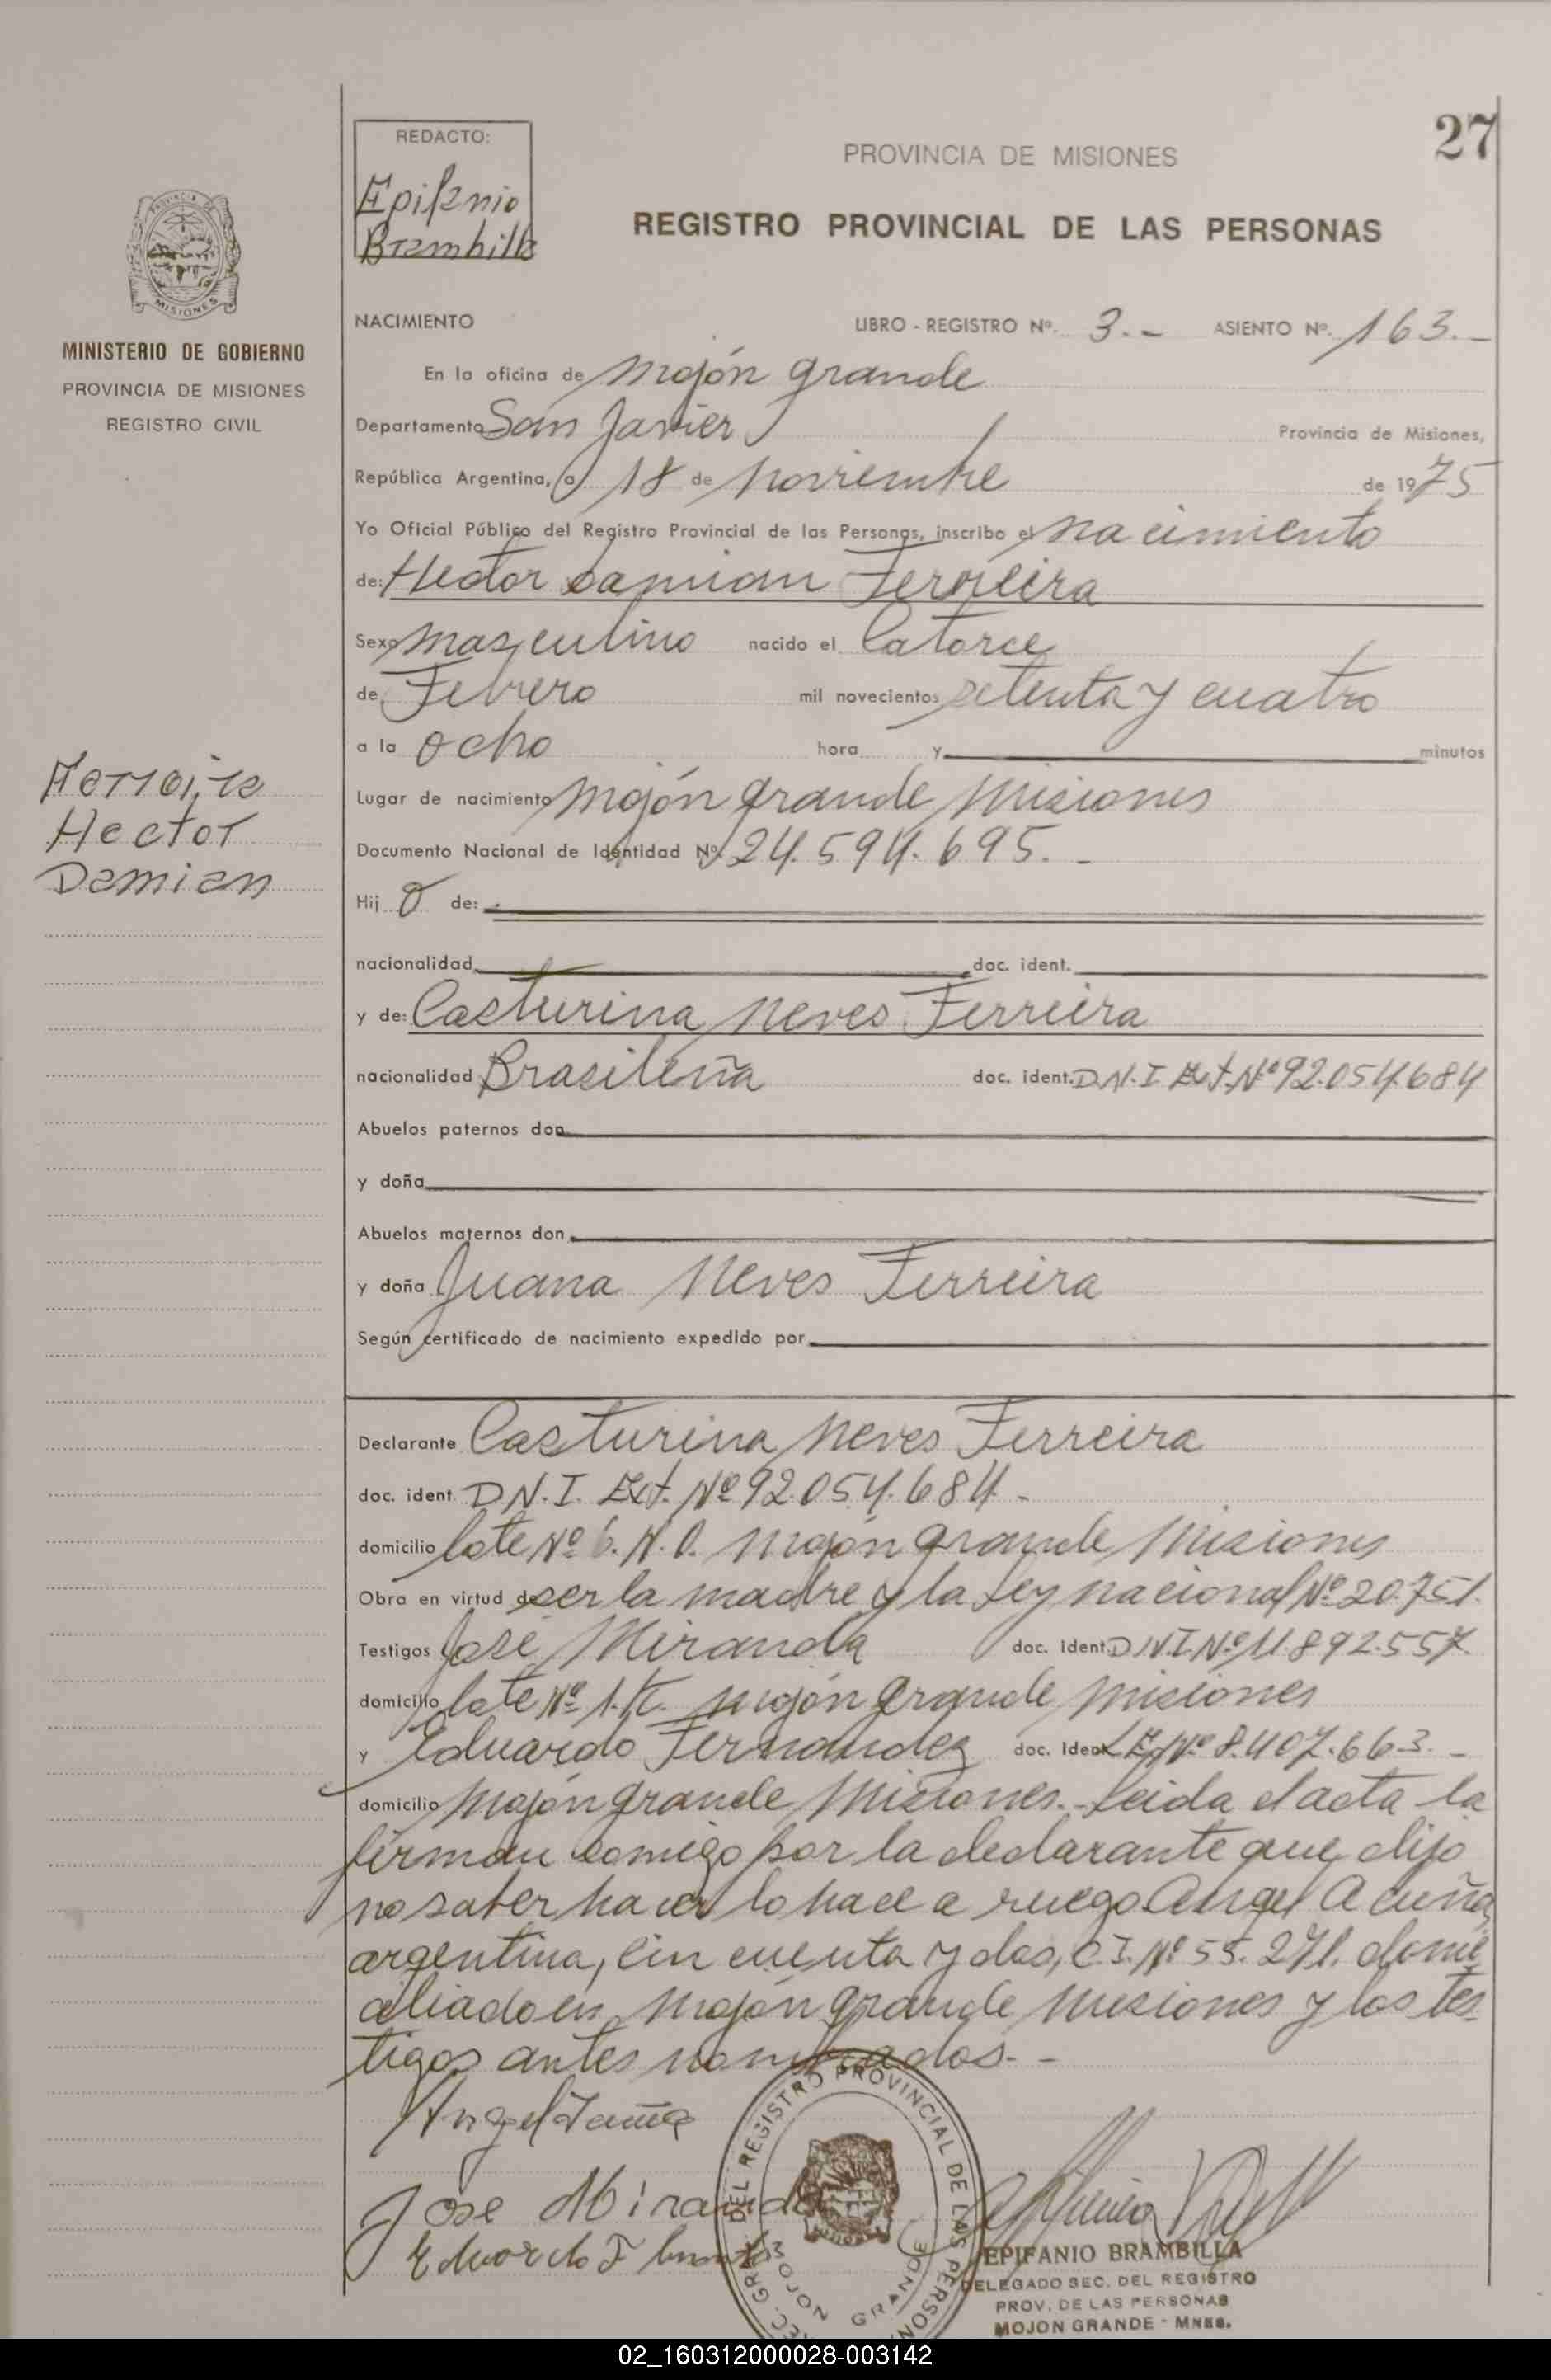 27
REDACTO:
Epifanio
Brambilla
PROVINCIA DE MISIONES
REGISTRO PROVINCIAL DE LAS PERSONAS
PROVINCIA DE
MISIONES
MINISTERIO DE GOBIERNO
PROVINCIA DE MISIONES
REGISTRO CIVIL
Ferreira
Hector
Damian
NACIMIENTO LIBRO - REGISTRO Nº. 3.- ASIENTO Nº. 163.-
En la oficina de Mojón grande
Departamento San Javier Provincia de Misiones,
República Argentina, a 18 de noviembre de 1975
Yo Oficial Público del Registro Provincial de las Personas, inscribo el nacimiento
de: Hector Damian Ferreira
Sexo masculino nacido el Catorce
de Febrero mil novecientos setenta y cuatro
a la ocho hora y minutos
Lugar de nacimiento Mojón grande Misiones
Documento Nacional de Identidad Nº 24.594.695.-
Hij o de:
nacionalidad doc. ident.
y de: Casturina Neves Ferreira
nacionalidad Brasileña doc. ident. D.N.I. Ext. Nº 92.054.684
Abuelos paternos don
y doña
Abuelos maternos don
y doña Juana Neves Ferreira
Según certificado de nacimiento expedido por
Declarante Casturina Neves Ferreira
doc. ident. D.N.I. Ext. Nº 92.054.684.-
domicilio lote Nº 6. N.O. Mojón grande Misiones
Obra en virtud de ser la madre y la Ley nacional Nº 20.751.
Testigos José Miranda doc. Ident. D.N.I. Nº 11.892.557.
domicilio lote Nº 1. Mojón grande Misiones
y Eduardo Fernandez doc. Ident. L.E. Nº 8.407.663.-
domicilio Mojón grande Misiones.- Leida el acta la
firman comigo por la declarante que dijo
no saber hacer lo hace a ruego Angel Acuña,
argentina, Cin cuenta y dos, C.I. Nº 55.271. domi
ciliado en Mojón grande Misiones y los tes
tigos antes nombrados.-
Angel Acuña
Jose Miranda
Eduardo F
DEL REGISTRO PROVINCIAL DE LAS PERSON
MOJON GRANDE
EPIFANIO BRAMBILLA
DELEGADO SEC. DEL REGISTRO
PROV. DE LAS PERSONAS
MOJON GRANDE - MNES.
02_160312000028-003142